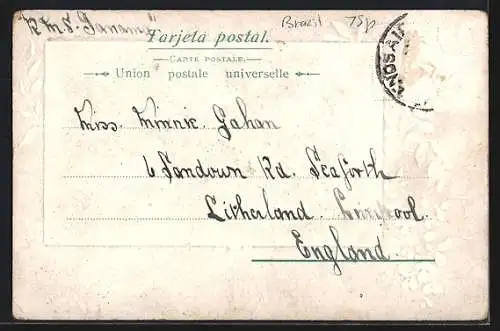 R.M.S. "Panama"
Brazil 75p
Tarjeta postal.
CARTE POSTALE.
Union postale universelle
Miss. Minnie. Gahan
6 Sandown Rd. Seaforth
Litherland Liverpool.
England.